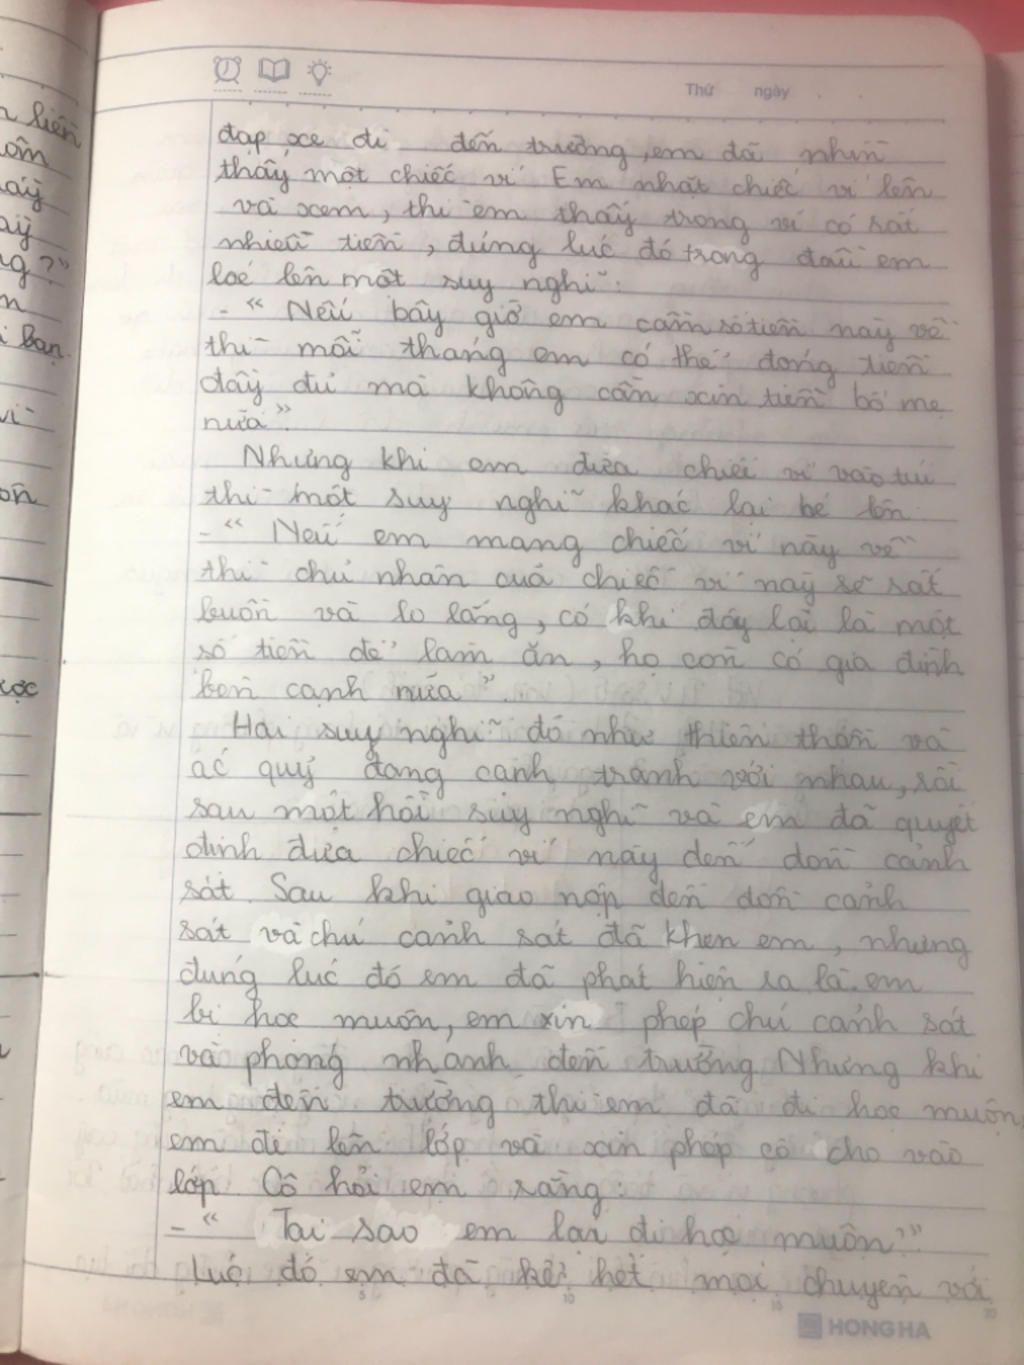 n liền
ồm
này
ng?"
n
i bạn.
vì
ôn
ược
Thứ ngày
đạp xe đi đến trường, em đã nhìn
thấy một chiếc ví Em nhặt chiếc ví lên
và xem, thì em thấy trong ví có rất
nhiều tiền, đúng lúc đó trong đầu em
loé lên một suy nghĩ:
- " Nếu bây giờ em cầm số tiền này về
thì mỗi tháng em có thể đóng tiền
đầy đủ mà không cần xin tiền bố mẹ
nữa".
Nhưng khi em đưa chiếc ví vào túi
thì một suy nghĩ khác lại bé lên
- " Nếu em mang chiếc ví này về
thì chủ nhân của chiếc ví này sẽ rất
buồn và lo lắng, có khi đấy lại là một
số tiền để làm ăn, họ còn có gia đình
bên cạnh nữa".
Hai suy nghĩ đó như thiên thần và
ác quỷ đang cạnh tranh với nhau, rồi
sau một hồi suy nghĩ và em đã quyết
định đưa chiếc ví này đến đồn cảnh
sát. Sau khi giao nộp đến đồn cảnh
sát và chú cảnh sát đã khen em, nhưng
đúng lúc đó em đã phát hiện ra là em
bị học muộn, em xin phép chú cảnh sát
và phóng nhanh đến trường. Nhưng khi
em đến trường thì em đã đi học muộn,
em đi lên lớp và xin phép cô cho vào
lớp. Cô hỏi em rằng:
- " Tại sao em lại đi học muộn?"
Lúc đó em đã kể hết mọi chuyện với
5 10 15 20
HONG HA